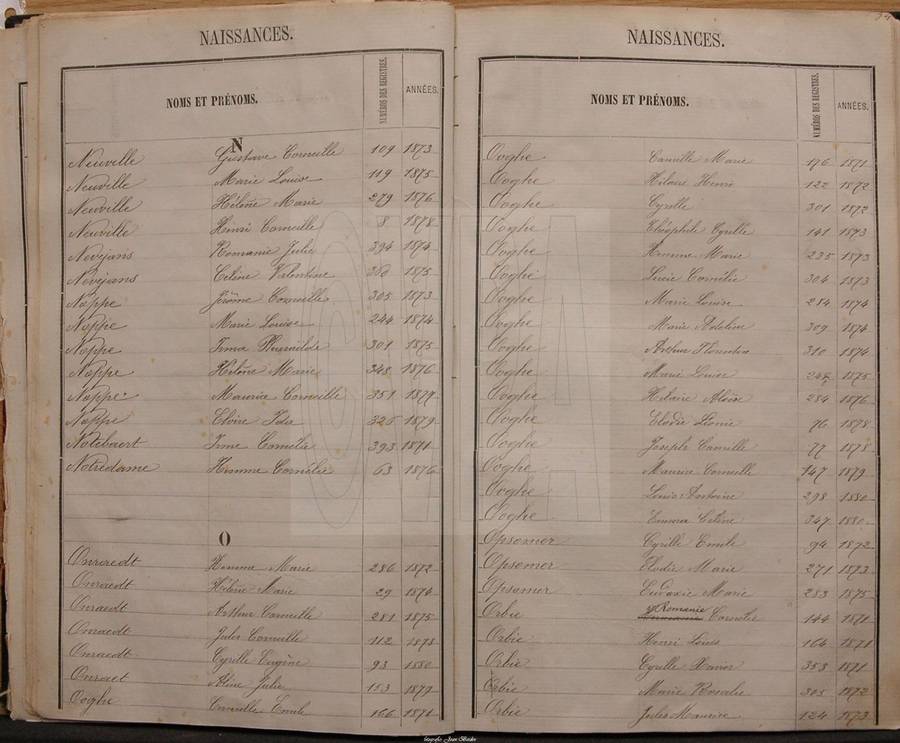 NAISSANCES.
NOMS ET PRÉNOMS. NUMÉROS DES REGISTRES. ANNÉES.
N
Neuville Gustave Corneille 109 1873
Neuville Marie Louise 119 1875
Neuville Hélène Marie 279 1876
Neuville Henri Corneille 8 1878
Nevejans Romanie Julie 394 1874
Nevejans Celine Valentine 380 1875
Noppe Jérôme Corneille 305 1873
Noppe Marie Louise 244 1874
Noppe Irma 301 1875
Noppe Hélène Marie 348 1876
Noppe Maurice Corneille 351 1877
Noppe Elvire Ida 325 1879
Notebaert Irme Cornélie 393 1871
Notredame Hemme Cornélie 63 1876
O
Onraedt Hemme Marie 286 1872
Onraedt Hélène Marie 29 1874
Onraedt Arthur Camille 281 1875
Onraedt Jules Corneille 112 1878
Onraedt Cyrille Eugène 93 1880
Onraet Aline Julie 153 1879
Ooghe Corneille Emile 166 1871
NAISSANCES.
NOMS ET PRÉNOMS. NUMÉROS DES REGISTRES. ANNÉES.
Ooghe Camille Marie 176 1871
Ooghe Hilaire Henri 122 1872
Ooghe Cyrille 301 1872
Ooghe Théophile Cyrille 141 1873
Ooghe Hemme Marie 235 1873
Ooghe Lucie Cornélie 304 1873
Ooghe Marie Louise 284 1874
Ooghe Marie Adeline 309 1874
Ooghe Arthur Florentin 310 1874
Ooghe Marie Louise 1875
Ooghe Hilaire Aloïse 284 1876
Ooghe Elodie Léonie 76 1878
Ooghe Joseph Camille 77 1878
Ooghe Maurice Corneille 147 1879
Ooghe Louis Antoine 298 1880
Ooghe Emma Celine 347 1880
Opsomer Cyrille Emile 94 1872
Opsomer Elodie Marie 271 1873
Opsomer Eudoxie Marie 283 1875
Orbie Romanie Cornélie 144 1871
Orbie Henri Louis 164 1871
Orbie Cyrille Xavier 353 1871
Orbie Marie Rosalie 305 1872
Orbie Jules Maurice 124 1873